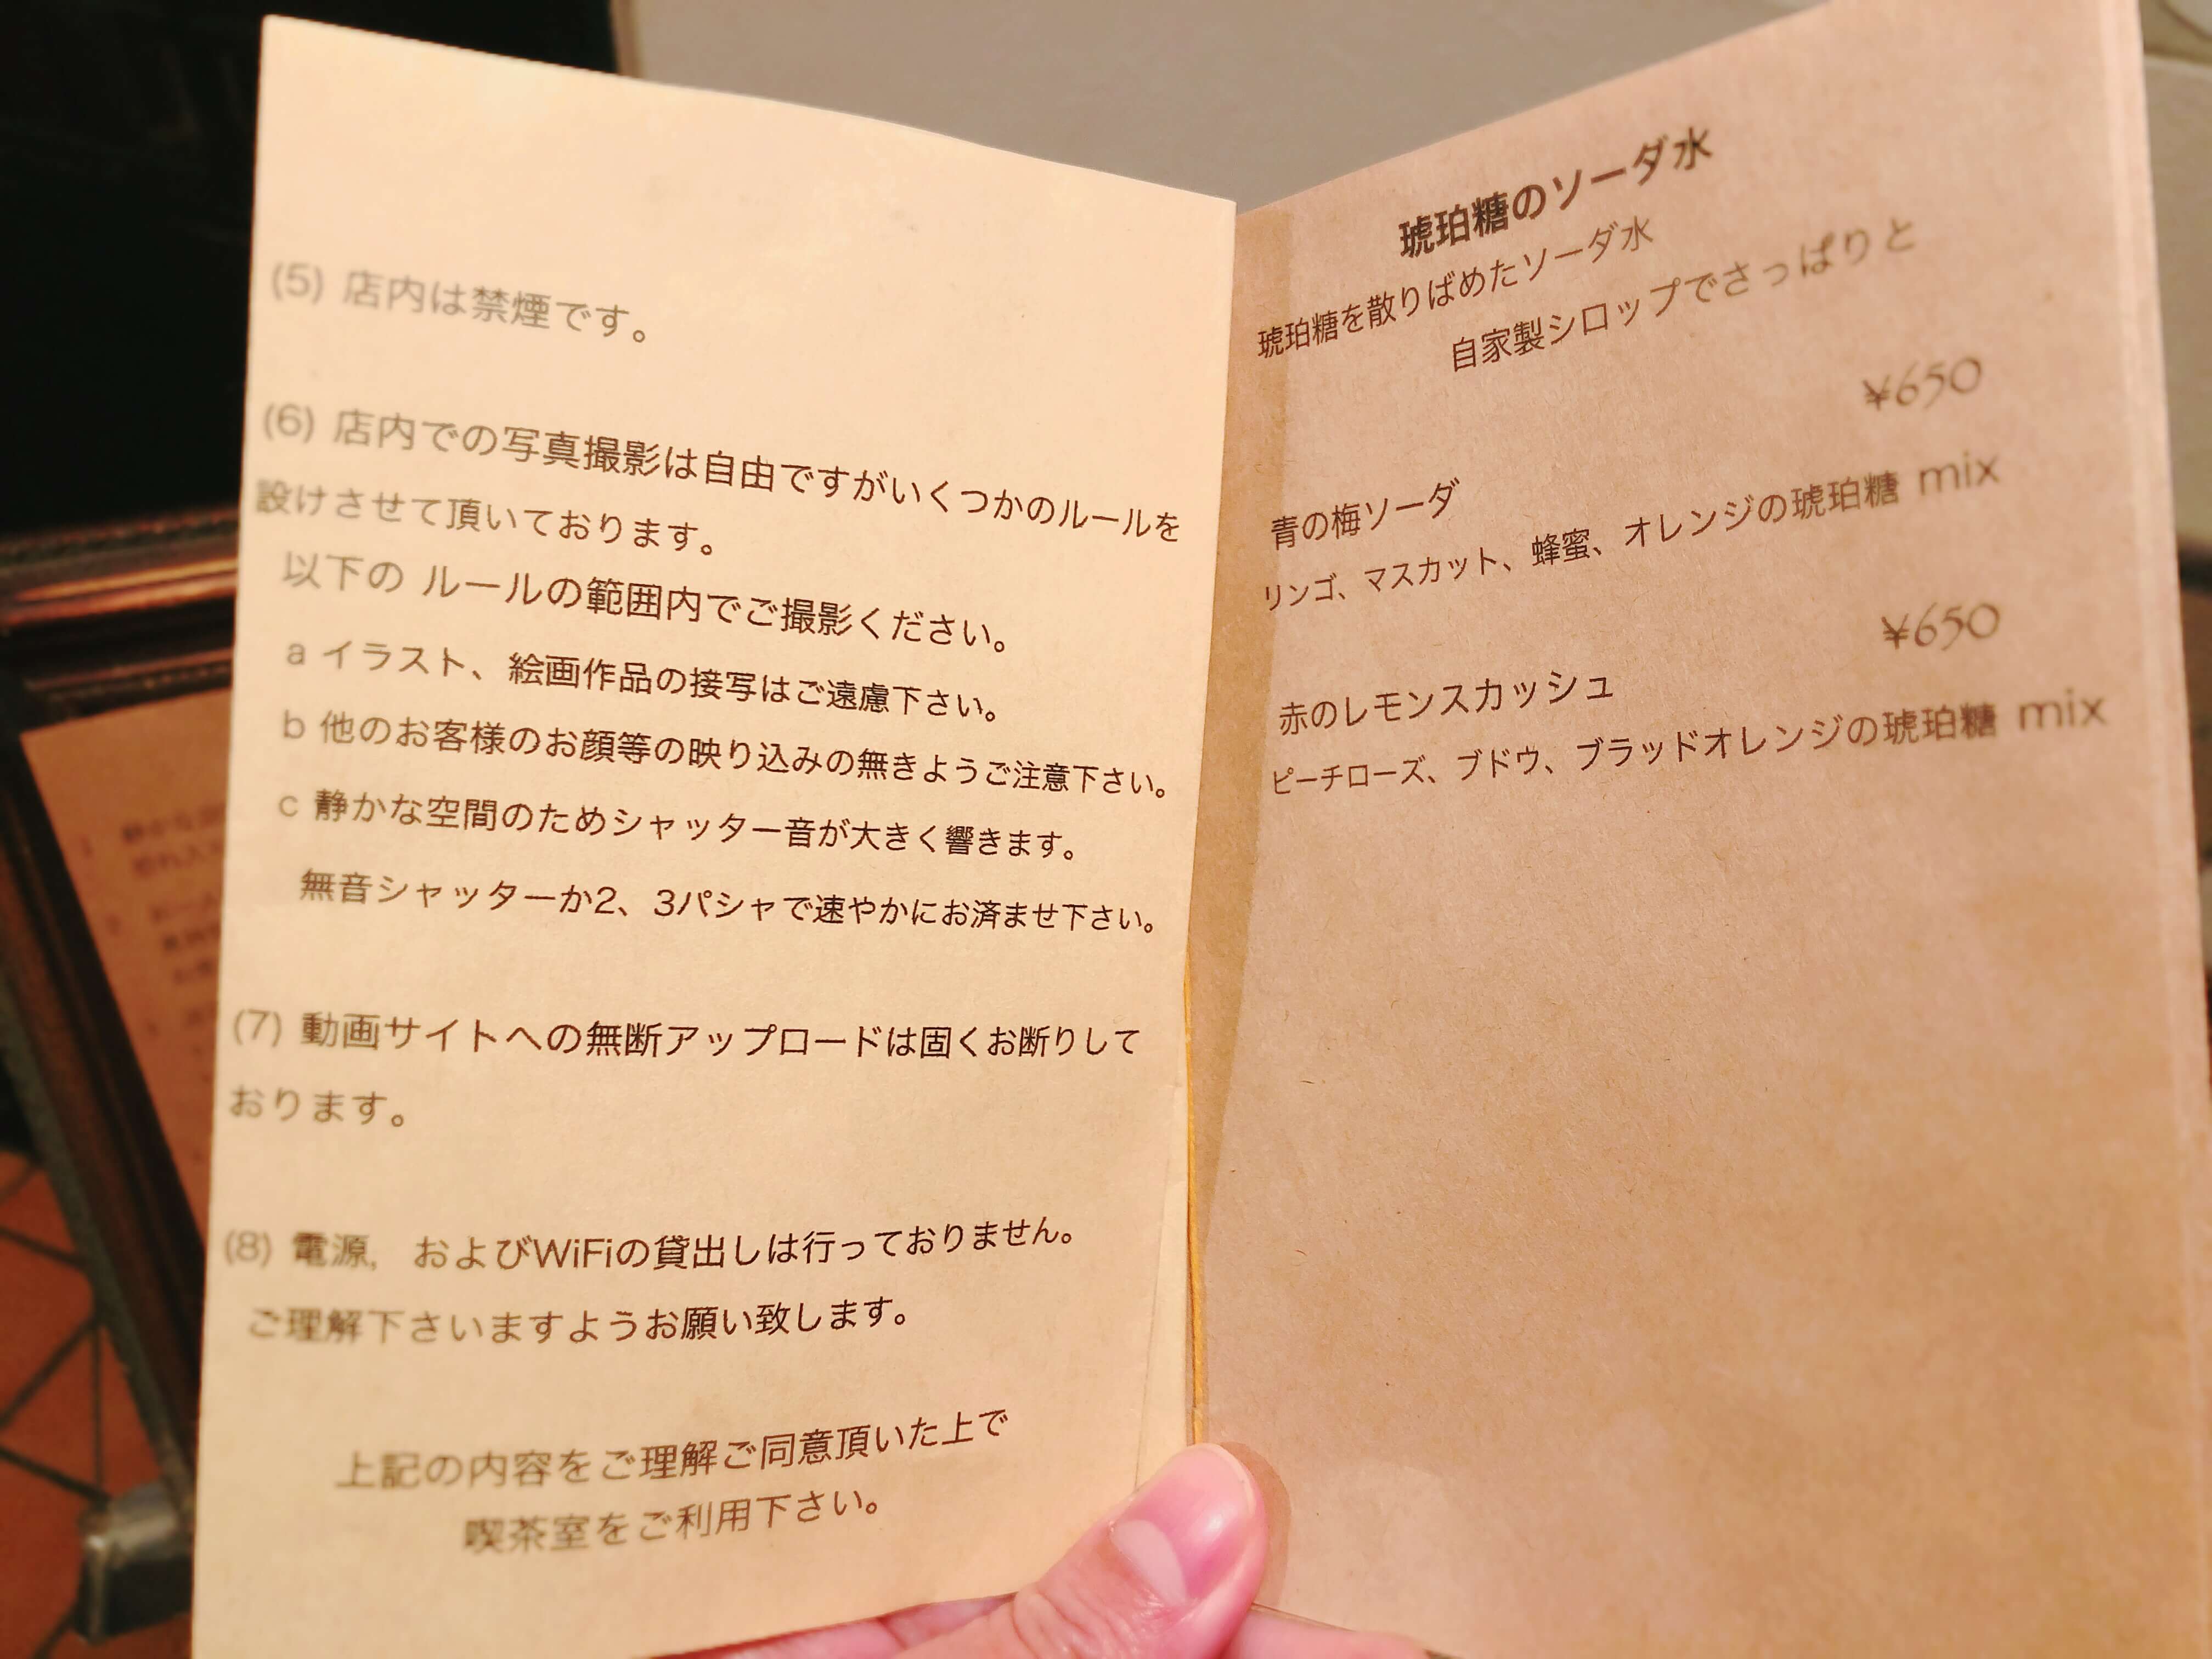 (5) 店内は禁煙です。
(6) 店内での写真撮影は自由ですがいくつかのルールを
設けさせて頂いております。
以下の ルールの範囲内でご撮影ください。
a イラスト、絵画作品の接写はご遠慮下さい。
b 他のお客様のお顔等の映り込みの無きようご注意下さい。
c 静かな空間のためシャッター音が大きく響きます。
無音シャッターか2、3パシャで速やかにお済ませ下さい。
(7) 動画サイトへの無断アップロードは固くお断りして
おります。
(8) 電源, およびWiFiの貸出しは行っておりません。
ご理解下さいますようお願い致します。
上記の内容をご理解ご同意頂いた上で
喫茶室をご利用下さい。
琥珀糖のソーダ水
琥珀糖を散りばめたソーダ水
自家製シロップでさっぱりと
¥650
青の梅ソーダ
リンゴ、マスカット、蜂蜜、オレンジの琥珀糖 mix
¥650
赤のレモンスカッシュ
ピーチローズ、ブドウ、ブラッドオレンジの琥珀糖 mix